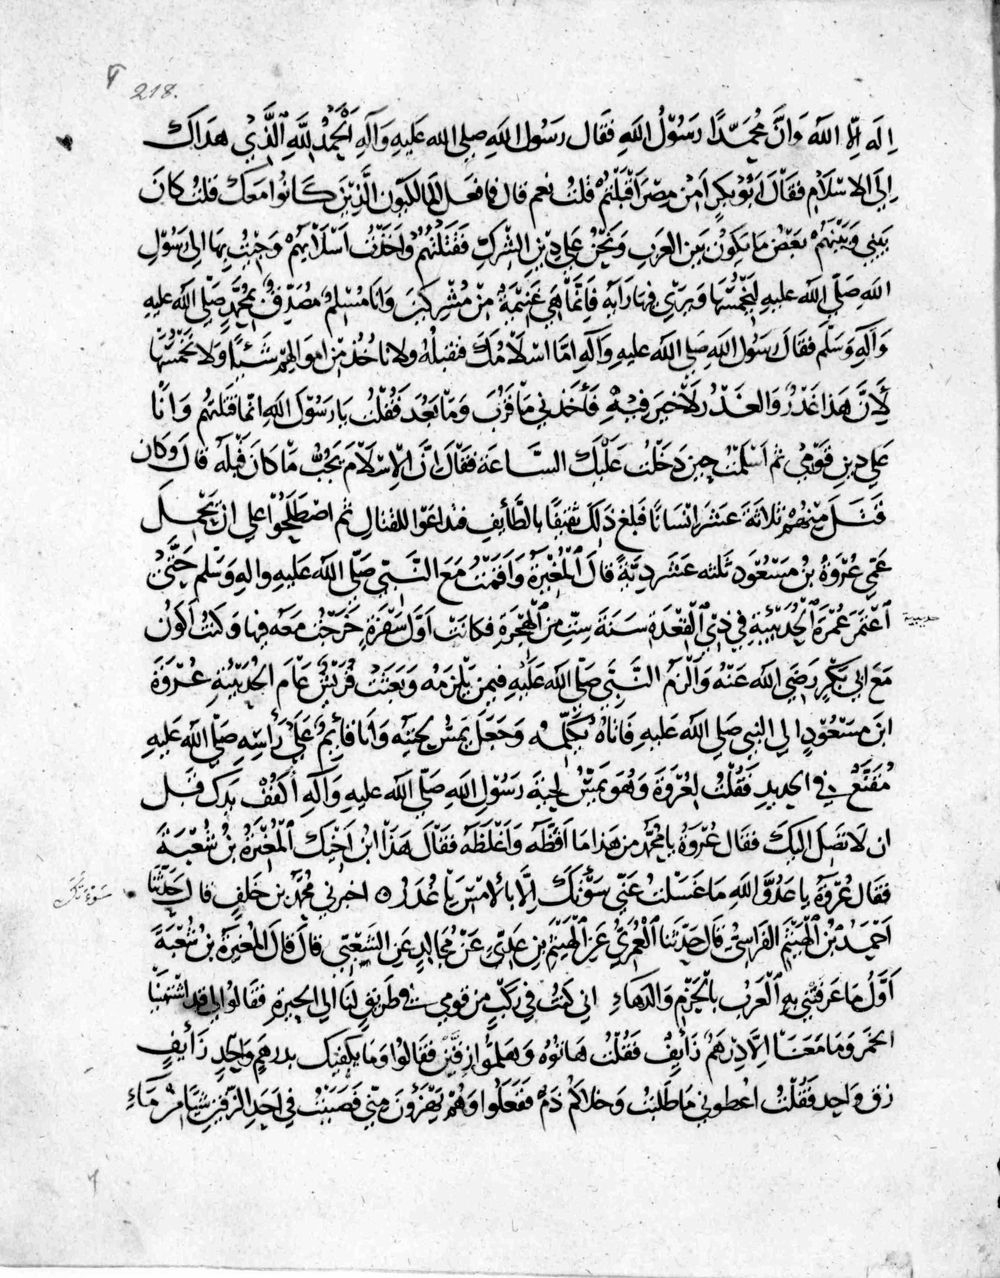 218.
اِلَه اِلّا اللّه وَانَّ مُحَمَّدًا رَسُوْلُ اللّهِ فقَال رَسُول اللّهِ صلى الله عَليهِ وَآلِهِ اَلْحَمْدُ لِلّهِ الَّذِيْ هَداك
اِلى الاسْلَامِ فَقَالَ اَبُوْ بَكرٍ اَمِنْ مِصْرَ اَقْبَلْتُمْ قلتُ نعم قال فما فعَل المَالكيّون الَّذِيْنَ كَانُوا مَعَكَ قلتُ كانَ
بَيْنِي وَبَيْنَهُمْ بَعْضُ مَا يكوْنُ بَين العَربِ وَنَحْنُ عَلى دِيْنِ الشّركِ فَقَتَلْتُهُمْ وَاَخَذْتُ اَسْلَابَهُمْ وَجِئتُ بِها الى رَسُوْلِ
اللّهِ صَلّى الله عليهِ لِيَخْمُسَها وَيَرى فيها رَايَه فَاِنّما هِي غَنِيْمَةٌ مِنْ مُشْرِكينَ وَانا مُسْلِمٌ مُصَدِّقٌ بمُحَمّدٍ صَلّى الله عليهِ
وَآلِهِ وَسَلّم فقالَ رَسُولُ اللّهِ صَلى الله عليهِ وَآلِهِ اِمَّا اسْلَامُكَ فقبلتُه ولا ناخُذ مِن اموَالهم شَيْئًا وَلا نَخْمُسُها
لِاَنَّ هَذا غَدْرٌ وَالغَدْرُ لَا خيرَ فيْهِ فاَخَذني مَا قَرُبَ وَمَا بَعُدَ فَقُلْتُ يا رَسُوْلَ اللّهِ انّما قَتَلتُهُم وَانَا
عَلى دِينِ قَوْمِي ثم اَسْلمتُ حِينَ دَخَلْتُ عَلَيْكَ السَّاعَة فَقَالَ اِنَّ الاِسْلَامَ يَجُبُّ مَا كانَ قَبْلَه قالَ وكان
قَتَلَ مِنهُمْ ثلاثَةَ عَشَرَ اِنْسَانًا فَبلغ ذَلِكَ ثقِيفًا بالطَّائِفِ فتداعَوا للقتالِ ثم اصْطَلَحُوا عَلى ان يَحْمِلَ
عَمّي عُرْوَةُ بنُ مَسْعُودٍ ثلثه عَشَرَ دِيَةً قالَ الْمُغِيرَة وَاَقَمْتُ مَعَ النّبِيّ صَلّى الله عَليهِ والهِ وَسَلّم حَتَّى
اَعْتَمَرَ عُمْرَةَ الْحُدَيْبِيَةِ في ذِي الْقَعْدَةِ سَنَةَ سِتٍّ مِنَ الْهِجْرَةِ فكانَتْ اَوّلَ سَفْرَةٍ خَرَجْتُ مَعَه فيها وَكنتُ اَكُوْنُ
حديبية
مَعَ ابي بَكْرٍ رَضِيَ الله عَنْهُ وَاَلْزَمُ النَّبِيّ صَلّى الله عَلَيْهِ فيمن يَلْزمُه وَبَعَثَتْ قُرَيْشٌ عَامَ الحُدَيْبِيَةِ عُرْوَةَ
ابنَ مَسْعُوْدٍ الى النبي صَلى الله عَليهِ فَاتاهُ يُكَلِّمُه وَجَعَلَ يَمَسّ لِحْيَتَه وَاَنا قائِمٌ عَلى رَأسِهِ صَلّى الله عَليهِ
مُقَنَّعٌ في الحديدِ فَقُلْتُ لِعُرْوَةَ وَهُوَ يَمَسُّ لحيةَ رَسُوْلِ اللّهِ صَلّى الله عليهِ وَآلِهِ اُكْفُفْ يَدَكَ قَبلَ
ان لَا تَصلَ اليكَ فقال عُرْوَةُ يا مُحَمّدُ من هَذا مَا اَفَظَّه وَاَغْلَظَه فقالَ هَذَا ابنُ اَخِيكَ الْمُغِيْرَةُ بنُ شُعْبَةَ
فقالَ عُرْوَةُ يا عَدُوَّ اللّهِ مَا غَسَلتُ عَنّي سَوْءَتَكَ اِلَّا بالاَمْسِ يا غُدَرُ ٥ اخبرني مُحَمّدُ بنُ خَلَفٍ قالَ حَدَّثَنا
اَحْمَدُ بنُ الْهَيْثَمِ الفَراسِيّ قالَ حَدّثَنَا الْعُمَرِيّ عَنِ الْهَيْثَمِ بنِ عَديّ عَنْ مُجَالِدٍ عَنِ الشَّعْبِيّ قالَ قالَ المُغِيرَةُ بنُ شُعْبَةَ
اَوّلُ مَا عَرَفَتْنِي بهِ الْعَرَبُ بالْحَزمِ وَالدَهَاءِ اني كنتُ في رَكْبٍ مِن قَوْمي في طَريقٍ لنا الى الحِيرَةِ فَقَالُوا لي قد اشْتَهَيْنا
الخَمرَ وَمَا مَعَنَا اِلّا دِرْهَمٌ زَايِفٌ فَقُلْتُ هَاتُوْه وَهَلمُّوا زِقَّيْنِ فَقَالُوا وَمَا يكفيكَ بدرهَمٍ وَاحِدٍ زَايِفٍ
زِقٌّ وَاحِد فَقُلْتُ اعْطوني مَا طَلَبْتُ وَخَلاكُمْ ذَمٌّ فَفَعَلُوا وَهُمْ يَهْزَءُونَ مِنّي فَصَبَبْتُ في اَحَدِ الزِّقَّينِ شيئًا مِنْ مَاءٍ